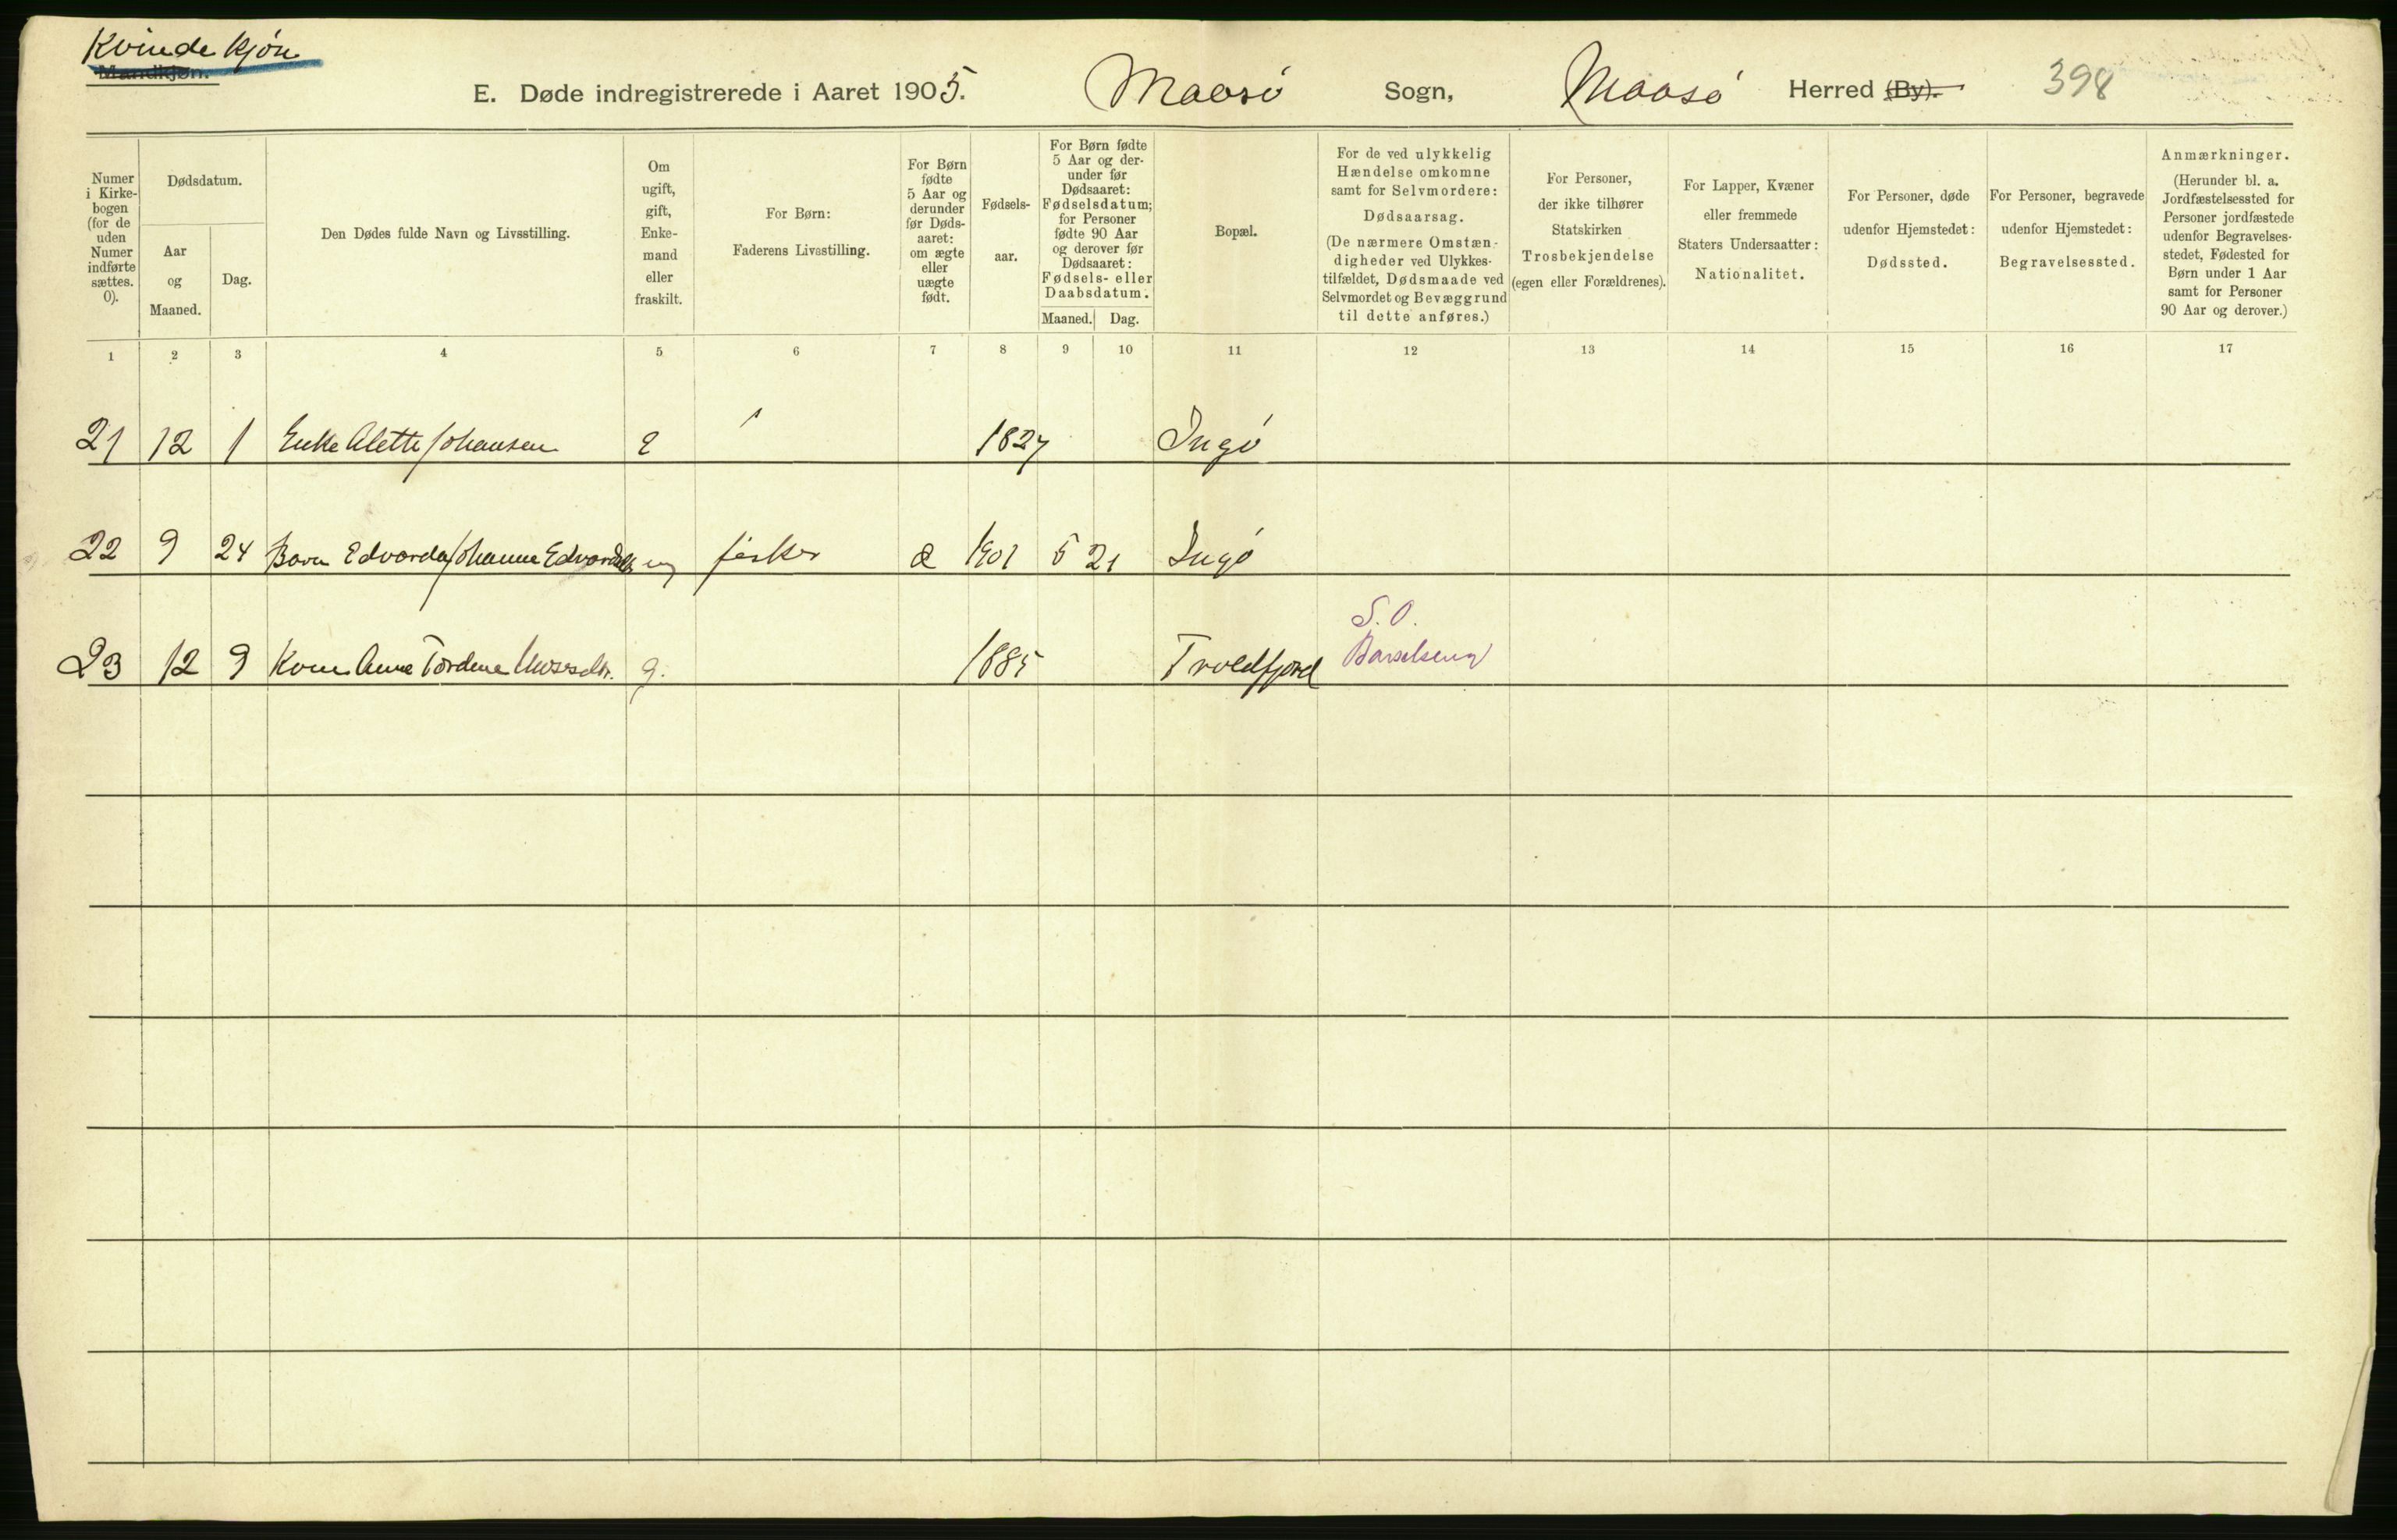 Kvindekjøn
Mandkjøn.
E. Døde indregistrerede i Aaret 1905. Maasø Sogn, Maasø Herred (By). 398
Numer i Kirkebogen (for de uden Numer indførte sættes. 0).
Dødsdatum.
Aar og Maaned.
Dag.
Den Dødes fulde Navn og Livsstilling.
Om ugift, gift, Enkemand eller fraskilt.
For Børn: Faderens Livsstilling.
For Børn fødte 5 Aar og derunder før Dødsaaret: om ægte eller uægte født.
Fødselsaar.
For Børn fødte 5 Aar og derunder før Dødsaaret: Fødselsdatum; for Personer fødte 90 Aar og derover før Dødsaaret: Fødsels- eller Daabsdatum.
Maaned. Dag.
Bopæl.
For de ved ulykkelig Hændelse omkomne samt for Selvmordere: Dødsaarsag. (De nærmere Omstændigheder ved Ulykkestilfældet, Dødsmaade ved Selvmordet og Bevæggrund til dette anføres.)
For Personer, der ikke tilhører Statskirken Trosbekjendelse (egen eller Forældrenes).
For Lapper, Kvæner eller fremmede Staters Undersaatter: Nationalitet.
For Personer, døde udenfor Hjemstedet: Dødssted.
For Personer, begravede udenfor Hjemstedet: Begravelsessted.
Anmærkninger. (Herunder bl. a. Jordfæstelsessted for Personer jordfæstede udenfor Begravelsesstedet, Fødested for Børn under 1 Aar samt for Personer 90 Aar og derover.)
1 2 3 4 5 6 7 8 9 10 11 12 13 14 15 16 17
21 12 1 Enke Alette Johansen E 1827 Ingø
22 9 24 Barn Edvarda Johanne Edvardsen ug fisker 1901 5 21 Ingø
S. O.
23 12 9 Kone Anne Tordine Mosesdtr. g. 1885 Troldfjord Barselseng